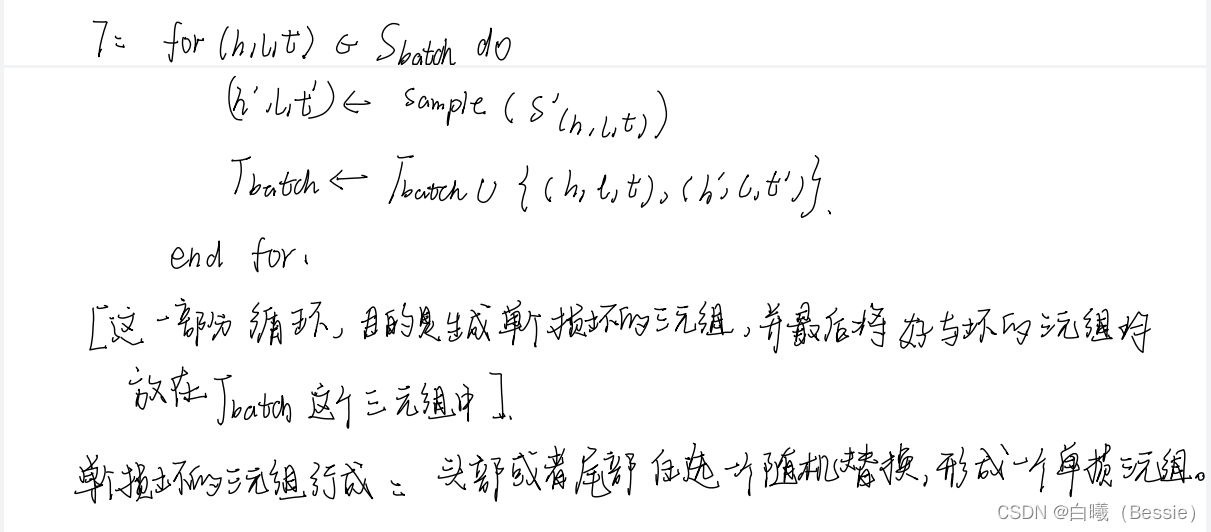 7: for (h,l,t) ∈ Sbatch do
(h',l,t') ← sample (S'(h,l,t))
Tbatch ← Tbatch ∪ {(h,l,t),(h',l,t')}.
end for.
[这一部分循环,目的是生成单个损坏的三元组,并最后将好与坏的三元组将
放在Tbatch这个三元组中].
单个损坏的三元组行成: 头部或者尾部任选一个随机替换,形成一个单损三元组。
CSDN @白曦（Bessie）